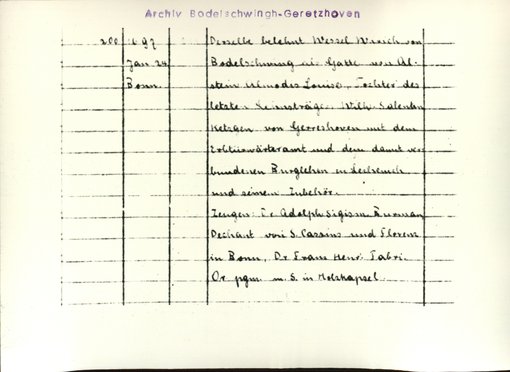 Archiv Bodelschwingh-Geretzhoven
200 1697 Derselbe belehnt Wessel Wirich von
Jan 24 Bodelschwing als Gatte von Al-
Bonn. stein Almodis Louise, Tochter des
letzten Leinsträgers Wilh. Salentin
Ketzgen von Gerreshoven mit dem
Erbtürwärteramt und dem damit ver-
bundenen Burglehen in Lechenich
und seinem Zubehör.
Zeugen: Dr. Adolph Sigism. Burman
Dechant von S. Cassius und Florenz
in Bonn, Dr. Franz Henr. Fabri.
Or. pgm. m. S. in Holzkapsel.